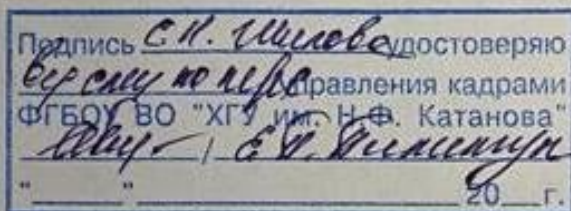 Подпись С.Н. Шилова удостоверяю
вед спец по перс управления кадрами
ФГБОУ ВО "ХГУ им. Н.Ф. Катанова"
/
" " 20 г.